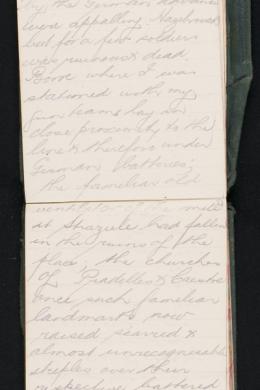 by the German advance
were appalling. Hazebrouck
but for a few soldiers
was ruinous & dead.
Borre where I was
stationed with my
gun teams lay in
close proximity to the
line & therefore under
German batteries;
the familiar old
mill
at Strazeele had fallen
in the ruins of the
place; the churches
of Pradelles & Caestre
once such familiar
landmarks now
raised scarred &
almost unrecognisable
steeples over their
respective battered